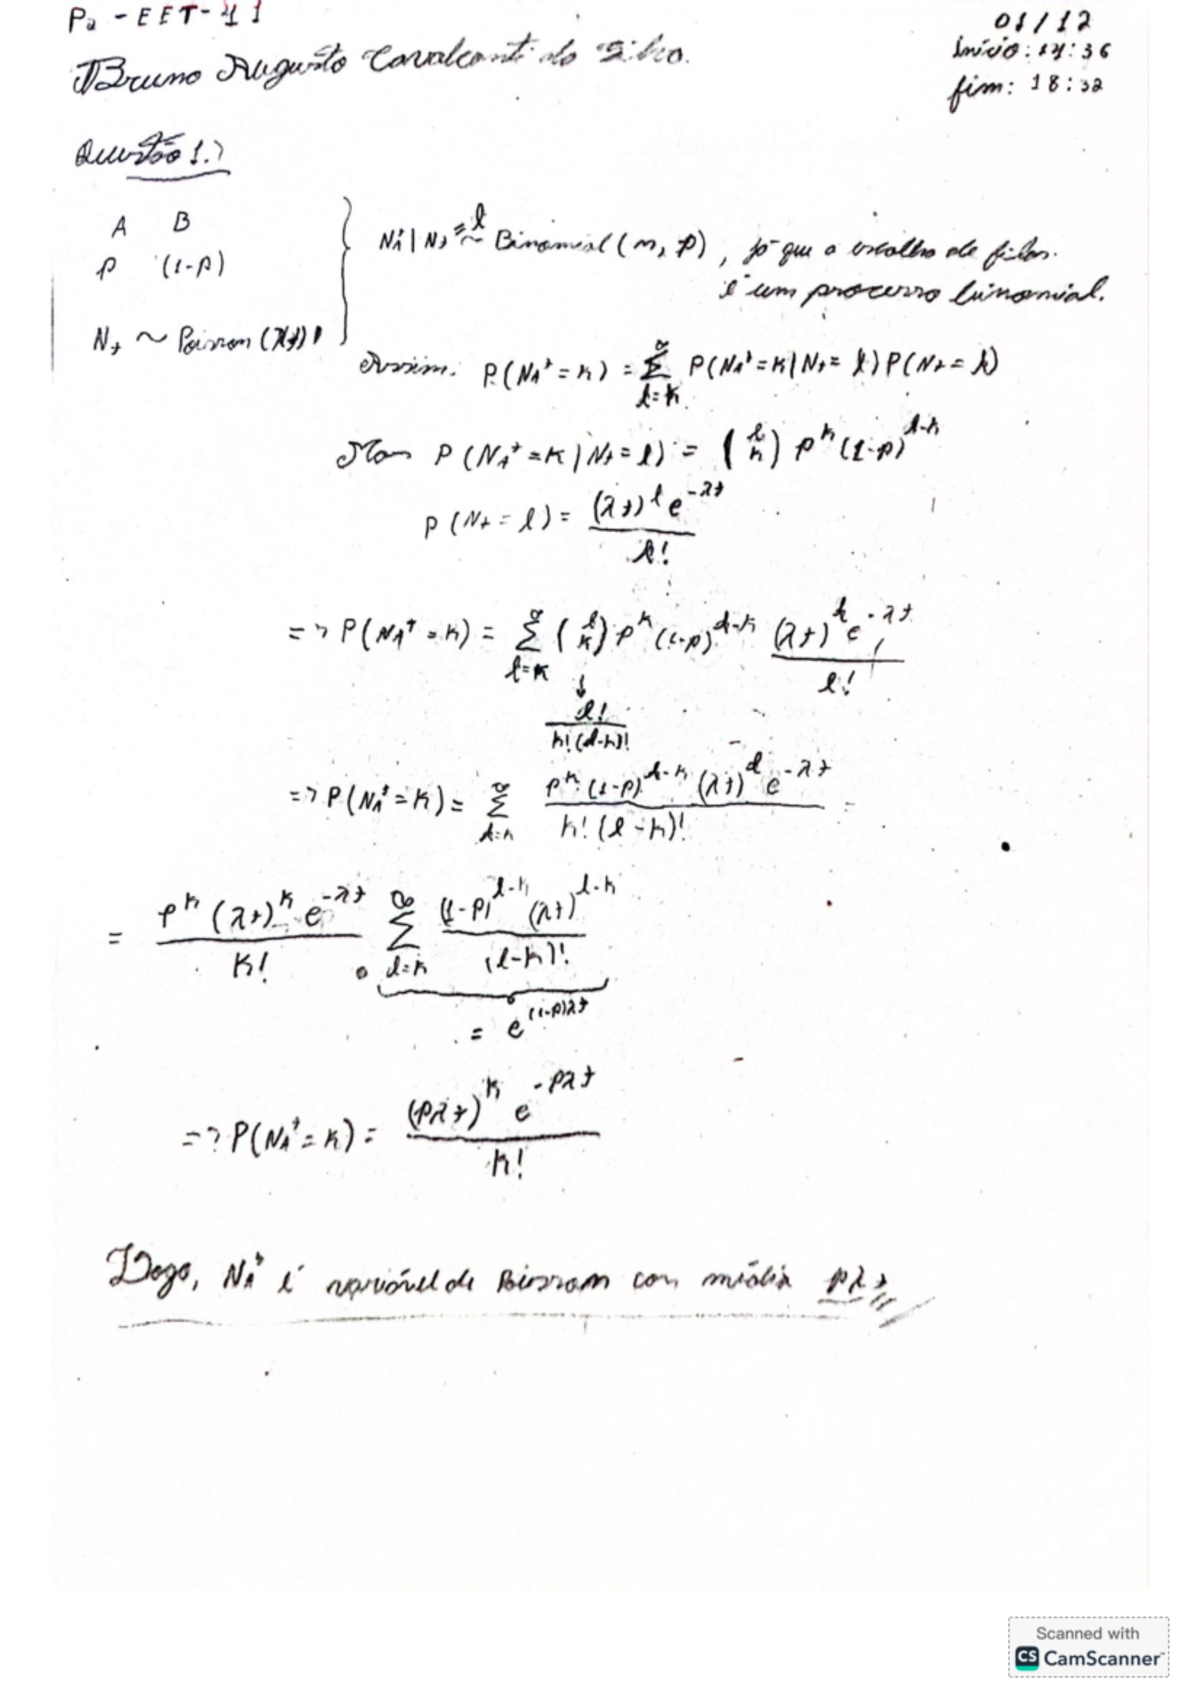 P2 - EET-41
01/12
Bruno Augusto Cavalcanti da Silva.
início: 14:36
fim: 18:32
Questão 1.)
A B
p (1-p)
N_t ~ Poisson (λt)
N_A^t | N_t = l ~ Binomial (n, p), já que a escolha de filas.
é um processo binomial.
Assim: P(N_A^t = k) = Σ_{l=k}^{∞} P(N_A^t = k | N_t = l) P(N_t = l)
Mas P(N_A^t = k | N_t = l) = (l k) p^k (1-p)^{l-k}
P(N_t = l) = (λt)^l e^{-λt} / l!
=> P(N_A^t = k) = Σ_{l=k}^{∞} (l k) p^k (1-p)^{l-k} (λt)^l e^{-λt} / l!
↓
l! / k!(l-k)!
=> P(N_A^t = k) = Σ_{l=k}^{∞} p^k (1-p)^{l-k} (λt)^l e^{-λt} / k!(l-k)! =
= p^k (λt)^k e^{-λt} / k! · Σ_{l=k}^{∞} (1-p)^{l-k} (λt)^{l-k} / (l-k)!
= e^{(1-p)λt}
=> P(N_A^t = k) = (pλt)^k e^{-pλt} / k!
Logo, N_A^t é variável de Poisson com média pλt //
Scanned with
CS CamScanner